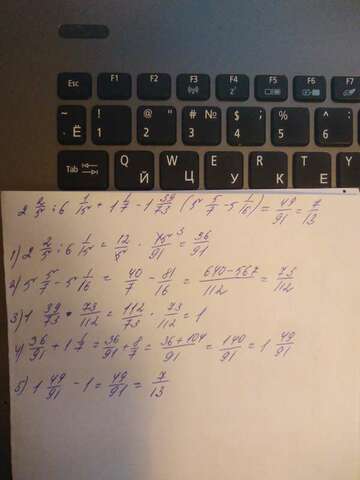 Esc F1 F2 F3 F4 F5 F6 F7
~ Ё ! 1 @ " 2 # № 3 $ ; 4 % 5 ^ : 6
Tab Q Й W Ц E У R К T Е
2 2/5 : 6 1/15 + 1 1/7 - 1 39/73 · (5 5/7 - 5 1/16) = 49/91 = 7/13
1) 2 2/5 : 6 1/15 = 12/5 · 15/91 3 = 36/91
2) 5 5/7 - 5 1/16 = 40/7 - 81/16 = 640-567/112 = 73/112
3) 1 39/73 · 73/112 = 112/73 · 73/112 = 1
4) 36/91 + 1 1/7 = 36/91 + 8/7 = 36+104/91 = 140/91 = 1 49/91
5) 1 49/91 - 1 = 49/91 = 7/13